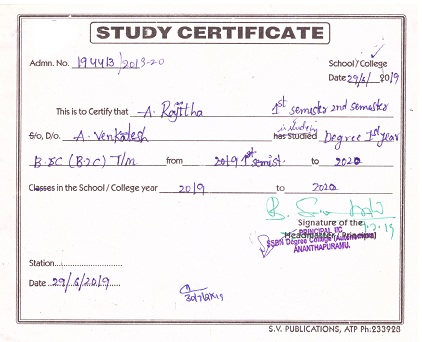 STUDY CERTIFICATE
Admn. No. 194413/2019-20 School / College
Date 29/6/2019
This is to Certify that A. Rajitha 1st semester 2nd semester
is studying
S/o, D/o. A. Venkatesh has Studied Degree 1st year
B.SC (B.Z.C) T/m from 2019 1st semist. to 2020
Classes in the School / College year 2019 to 2020
Signature of the
Headmaster / Principal
PRINCIPAL I/C
SSBN Degree College (Autonomous)
ANANTHAPURAMU.
Station
Date 29/6/2019
S.V. PUBLICATIONS, ATP Ph:233928